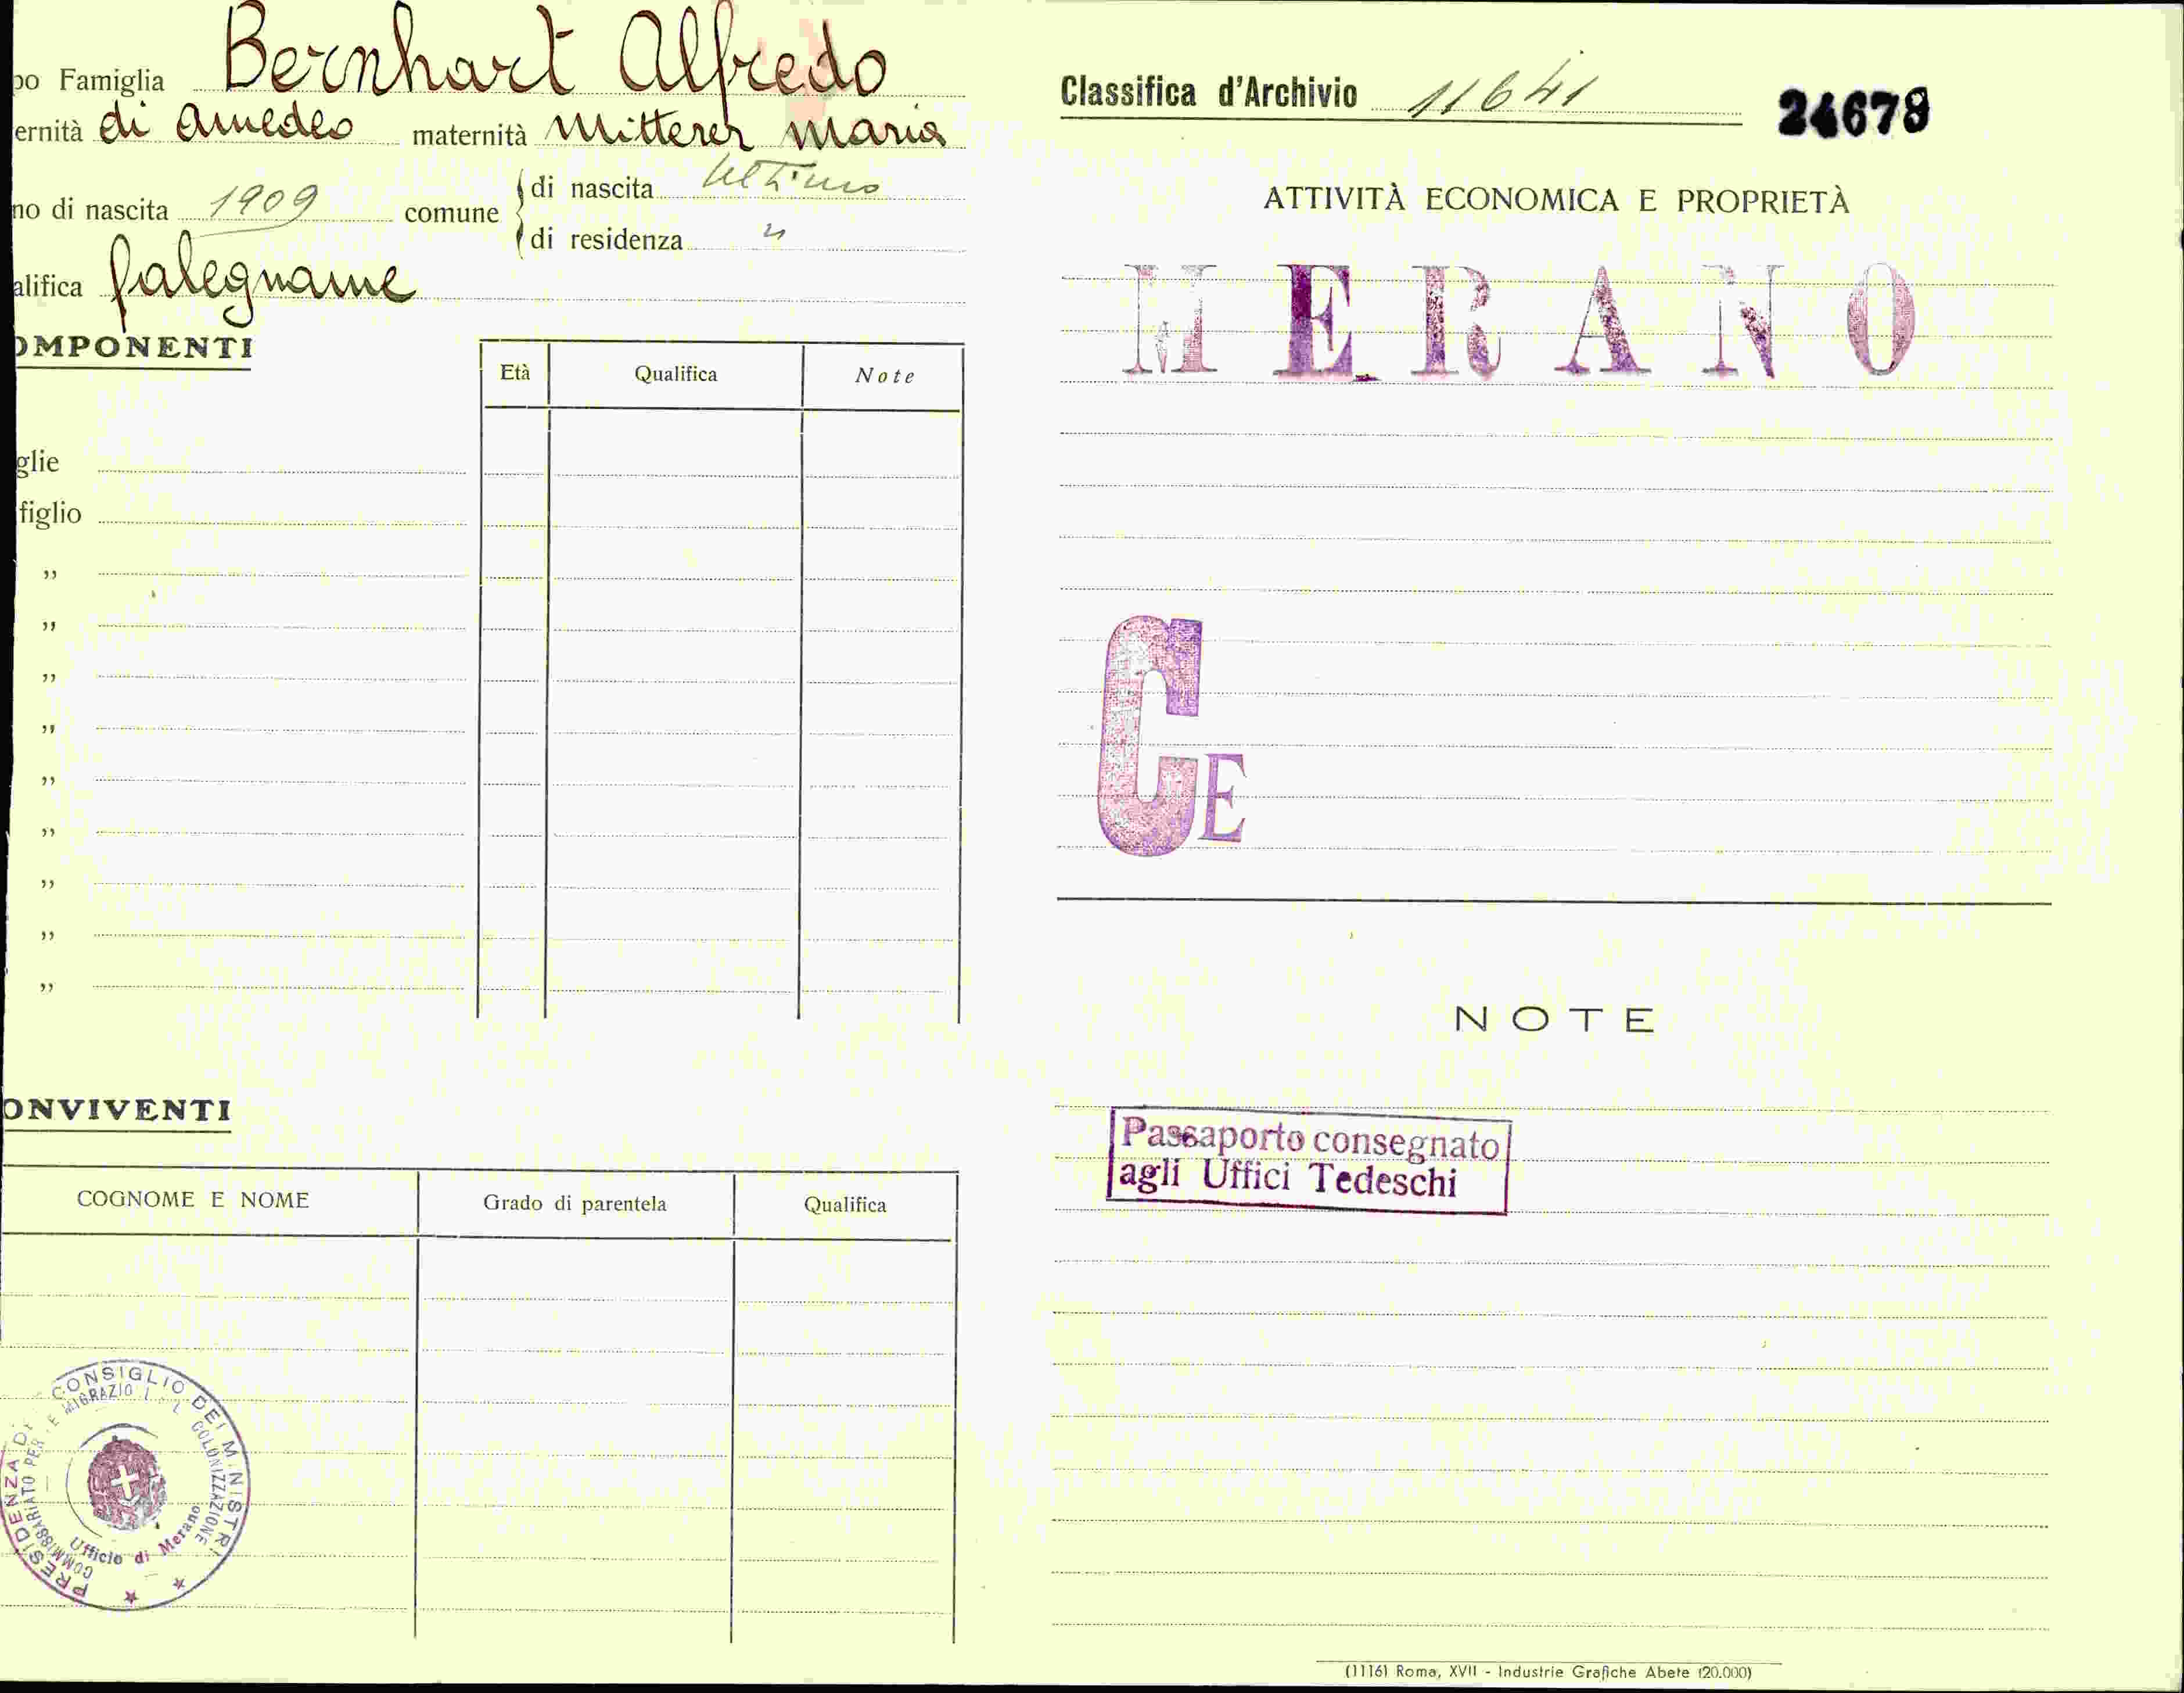 po Famiglia Bernhart Alfredo
ernità di Amedeo maternità Mitterer Maria
no di nascita 1909 comune di nascita Ultimo
di residenza "
alifica falegname
OMPONENTI
Età Qualifica Note
glie
figlio
"
"
"
"
"
"
"
"
"
ONVIVENTI
COGNOME E NOME Grado di parentela Qualifica
PRESIDENZA DEL CONSIGLIO DEI MINISTRI
COMMISSARIATO PER LE MIGRAZIO COLONIZZAZIONE
Ufficio di Merano
Classifica d'Archivio 11641 24679
ATTIVITÀ ECONOMICA E PROPRIETÀ
MERANO
CE
NOTE
Passaporto consegnato
agli Uffici Tedeschi
(1116) Roma, XVII - Industrie Grafiche Abete (20.000)